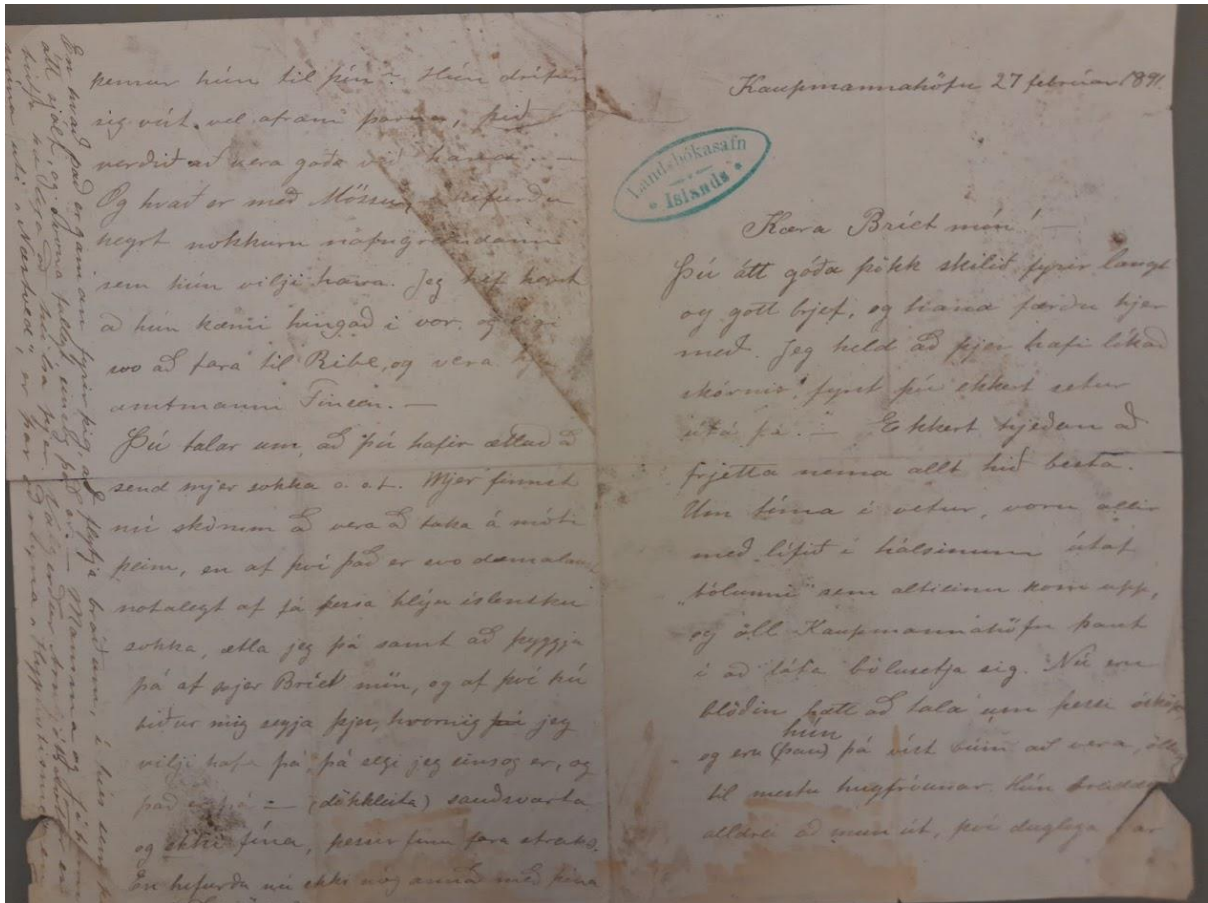 Kaupmannahöfn 27 febrúar 1891.
Landsbókasafn
Íslands
Kæra Bríet mín! —
Þú átt góða þökk skilið fyrir langt
og gott brjef, og hana færðu hjer
með. Jeg held að þjer hafi líkað
skórnir, fyrst þú ekkert setur
útá þá. — Ekkert hjeðan að
frjetta nema allt hið besta.
Um tíma í vetur, voru allir
með lífið í hálsinum útaf
„bólunni" sem altieinu kom upp,
og öll Kaupmannahöfn þaut
í að láta bólusetja sig. Nú eru
blöðin hætt að tala um þessi ósköp,
hún
og eru (þau) þá víst búin að vera, öllum
til mestu hugfróunar. Hún breidd
alldrei að mun út, því duglega var
kemur hún til þín? Hún drífur
sig víst vel áfram þarna, þið
verðið að vera góða við hana. —
Og hvað er með Mössu, hefurðu
heyrt nokkurn náfngreindann
sem hún vilji hava. Jeg hef
að hún kæmi hingað í vor, og
svo að fara til Ribe, og vera hjá
amtmanni Finsen. —
Þú talar um, að þú hafir ættlað að
send mjer sokka o. s.f. Mjer finnst
nú skömm að vera að taka á móti
þeim, en af því það er svo dæmalaust
notalegt af fá þessa hlýju íslensku
sokka, ætla jeg þá samt að þyggja
þá af þjer Bríet mín, og af því þú
biður mig segja þjer, hvernig þú jeg
vilji hafa þá, þá elgi jeg eins og er, og
það er, á — (dökkleita) sauðsvarta
og ekki fína, þessir fínu fara straks.
En hefurðu nú ekki nóg annað með þína
En hvað það er gaman fyrir þig, að flytja bráðum, í hús sem þú
átt sjálf, og svona fallegt, einsog það er. — Mamma og Játvarður
biðja að heilsa þjer.
mína, uli á Næstved", er þar